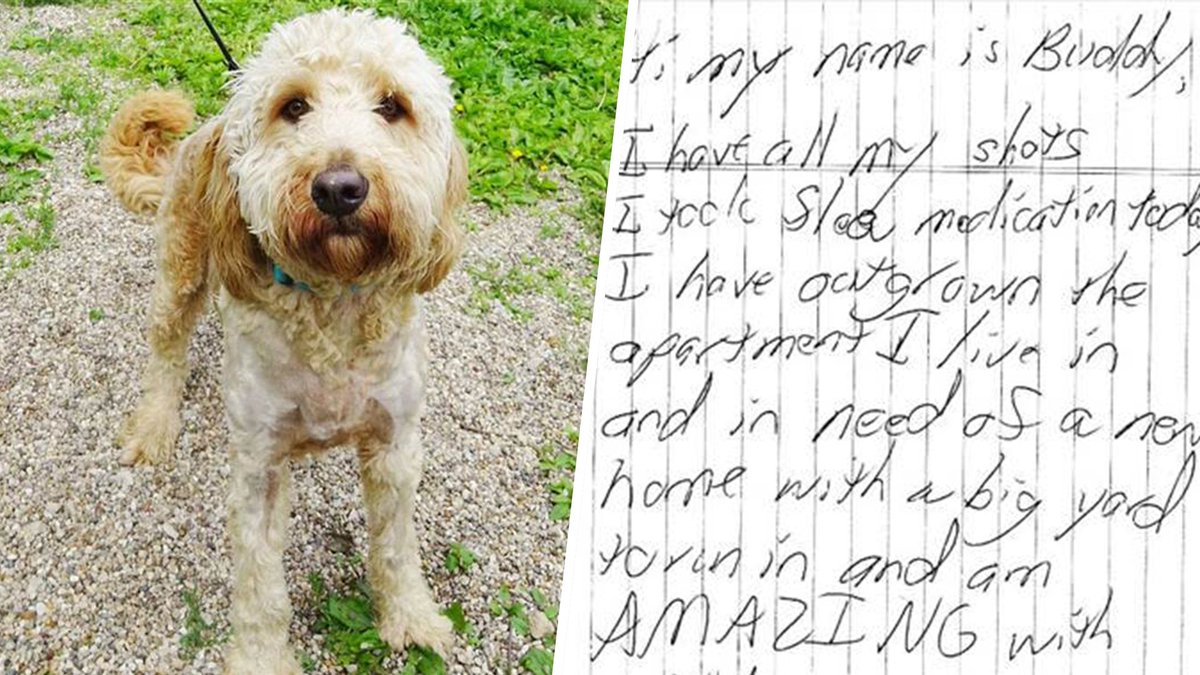 Hi my name is Buddy,
I have all my shots
I took flea medication today
I have outgrown the
apartment I live in
and in need of a new
home with a big yard
to run in and am
AMAZING with